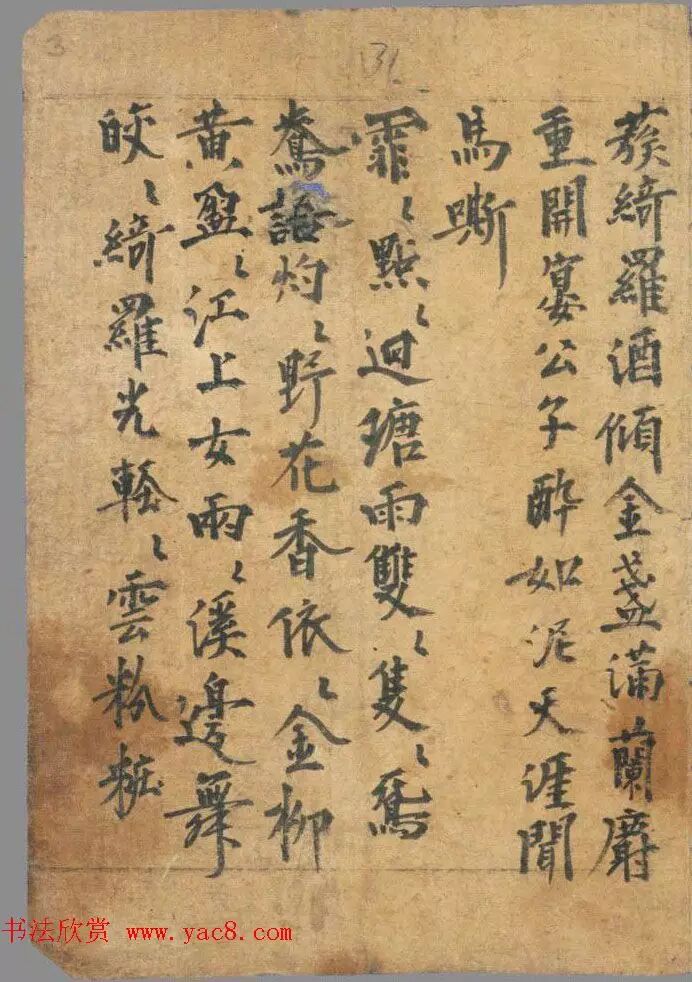 蔟綺羅酒傾金盞滿蘭麝
重開宴公子醉如泥天涯聞
馬嘶
霏〻點〻迴塘雨雙〻隻〻鴛
鴦語灼〻野花香依〻金柳
黃盈〻江上女兩〻溪邊舞
皎〻綺羅光輕〻雲粉粧
3
31
书法欣赏 www.yac8.com